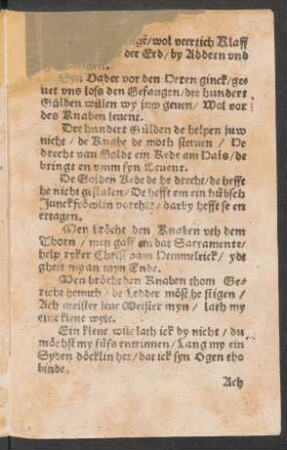 gē/ wol veertich Klaff
der Erd/ by Addern vnd
Syn Vader vor den Heren ginck/ ge⸗
uet vns loß den Gefangen/ dre hundert
Gülden willen wy juw geuen/ Wol vor
des Knaben leuent.
Dre hundert Gülden de helpen juw
nicht/ de Knabe de moth steruen/ He
drecht van Goldt ein Kede am Hals/ de
bringt en vmm syn Leuent.
De Golden Kede de he drecht/ de hefft
he nicht gestalen/ De hefft em ein hübsch
Junckfröwlin vorehrt/ darby hefft se en
ertagen.
Men bröcht den Knaben vth dem
Thorn/ men gaff em dat Sacramente/
help ryker Christ vam Hemmelrick/ ydt
gheit my an myn Ende.
Men bröcht den Knaben thom Ge⸗
richt henuth/ de Ledder möst he stigen/
Ach meister leue Meister myn/ lath my
eine klene wyle.
Ein klene wile lath ick dy nicht/ du
möchst my süss entrinnen/ Lang my ein
Syden döcklin her/ dat ick syn Ogen tho
binde.
Ach